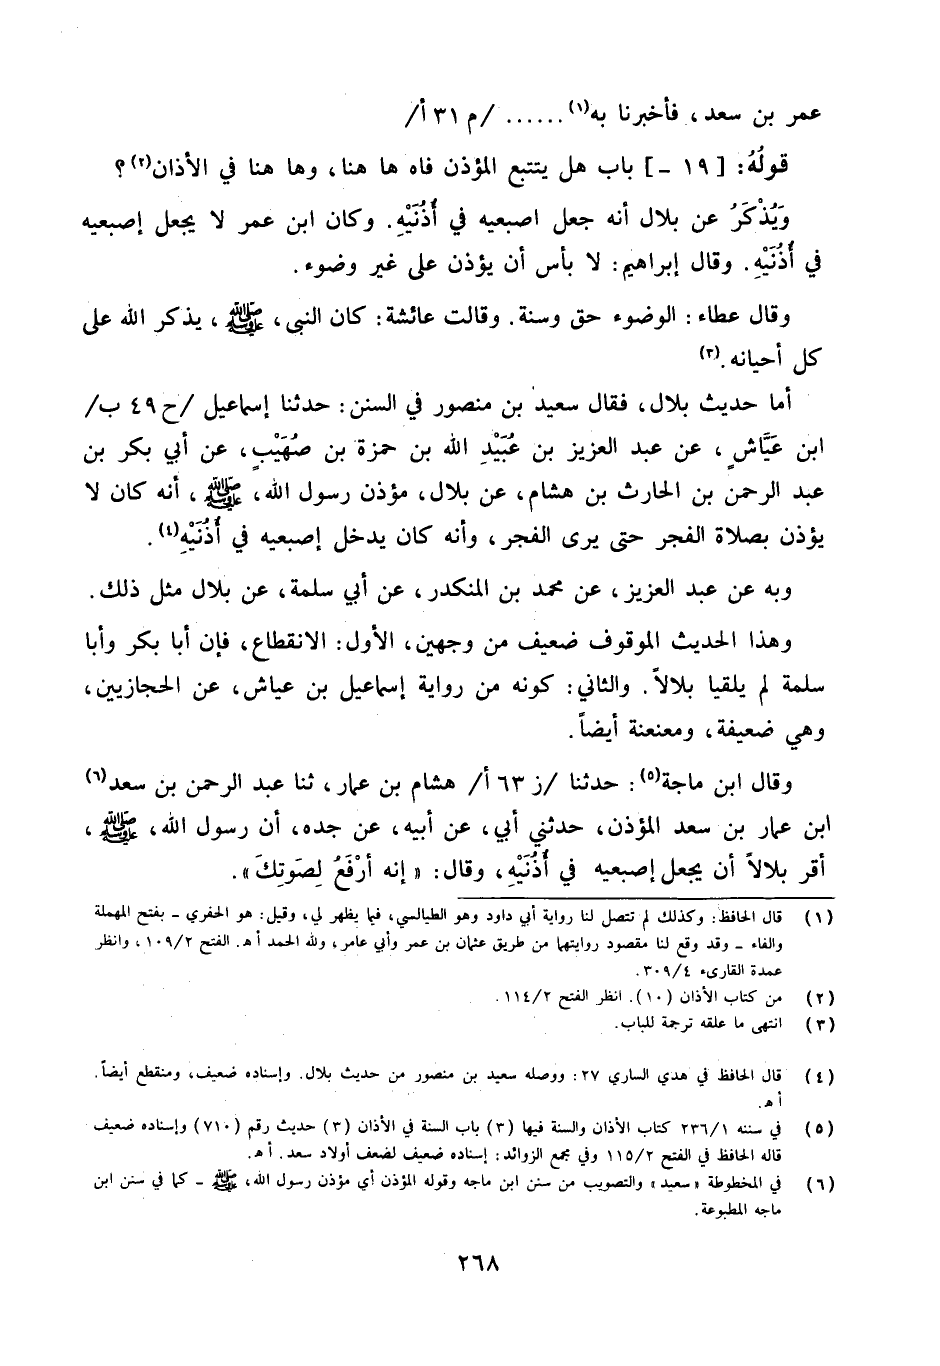 عمر بن سعد، فأخبرنا به(١)...... /م ٣١ أ/
قولُهُ: [١٩ ـ] باب هل يتتبع المؤذن فاه ها هنا، وها هنا في الأذان(٢)؟
ويُذْكَرُ عن بلال أنه جعل اصبعيه في أُذُنَيْهِ. وكان ابن عمر لا يجعل إصبعيه
في أُذُنَيْهِ. وقال إبراهيم: لا بأس أن يؤذن على غير وضوء.
وقال عطاء: الوضوء حق وسنة. وقالت عائشة: كان النبي، ﷺ، يذكر الله على
كل أحيانه.(٣)
أما حديث بلال، فقال سعيد بن منصور في السنن: حدثنا إسماعيل /ح ٤٩ ب/
ابن عَيَّاشٍ، عن عبد العزيز بن عُبَيْدِ الله بن حمزة بن صُهَيْبٍ، عن أبي بكر بن
عبد الرحمن بن الحارث بن هشام، عن بلال، مؤذن رسول الله، ﷺ، أنه كان لا
يؤذن بصلاة الفجر حتى يرى الفجر، وأنه كان يدخل إصبعيه في أُذُنَيْهِ(٤).
وبه عن عبد العزيز، عن محمد بن المنكدر، عن أبي سلمة، عن بلال مثل ذلك.
وهذا الحديث الموقوف ضعيف من وجهين، الأول: الانقطاع، فإن أبا بكر وأبا
سلمة لم يلقيا بلالاً. والثاني: كونه من رواية إسماعيل بن عياش، عن الحجازيين،
وهي ضعيفة، ومعنعنة أيضاً.
وقال ابن ماجة(٥): حدثنا /ز ٦٣ أ/ هشام بن عمار، ثنا عبد الرحمن بن سعد(٦)
ابن عمار بن سعد المؤذن، حدثني أبي، عن أبيه، عن جده، أن رسول الله، ﷺ،
أقر بلالاً أن يجعل إصبعيه في أُذُنَيْهِ، وقال: «إنه أرْفَعُ لِصَوتِكَ».
(١) قال الحافظ: وكذلك لم تتصل لنا رواية أبي داود وهو الطيالسي، فيما يظهر لي، وقيل: هو الحفري ـ بفتح المهملة
والفاء ـ وقد وقع لنا مقصود روايتهما من طريق عثمان بن عمر وأبي عامر، ولله الحمد أ هـ. الفتح ١٠٩/٢، وانظر
عمدة القارىء ٣٠٩/٤.
(٢) من كتاب الأذان (١٠). انظر الفتح ١١٤/٢.
(٣) انتهى ما علقه ترجمة للباب.
(٤) قال الحافظ في هدي الساري ٢٧: ووصله سعيد بن منصور من حديث بلال. وإسناده ضعيف، ومنقطع أيضاً.
أ هـ.
(٥) في سننه ٢٣٦/١ كتاب الأذان والسنة فيها (٣) باب السنة في الأذان (٣) حديث رقم (٧١٠) وإسناده ضعيف
قاله الحافظ في الفتح ١١٥/٢ وفي مجمع الزوائد: إسناده ضعيف لضعف أولاد سعد. أ هـ.
(٦) في المخطوطة «سعيد» والتصويب من سنن ابن ماجه وقوله المؤذن أي مؤذن رسول الله، ﷺ ـ كما في سنن ابن
ماجه المطبوعة.
٢٦٨